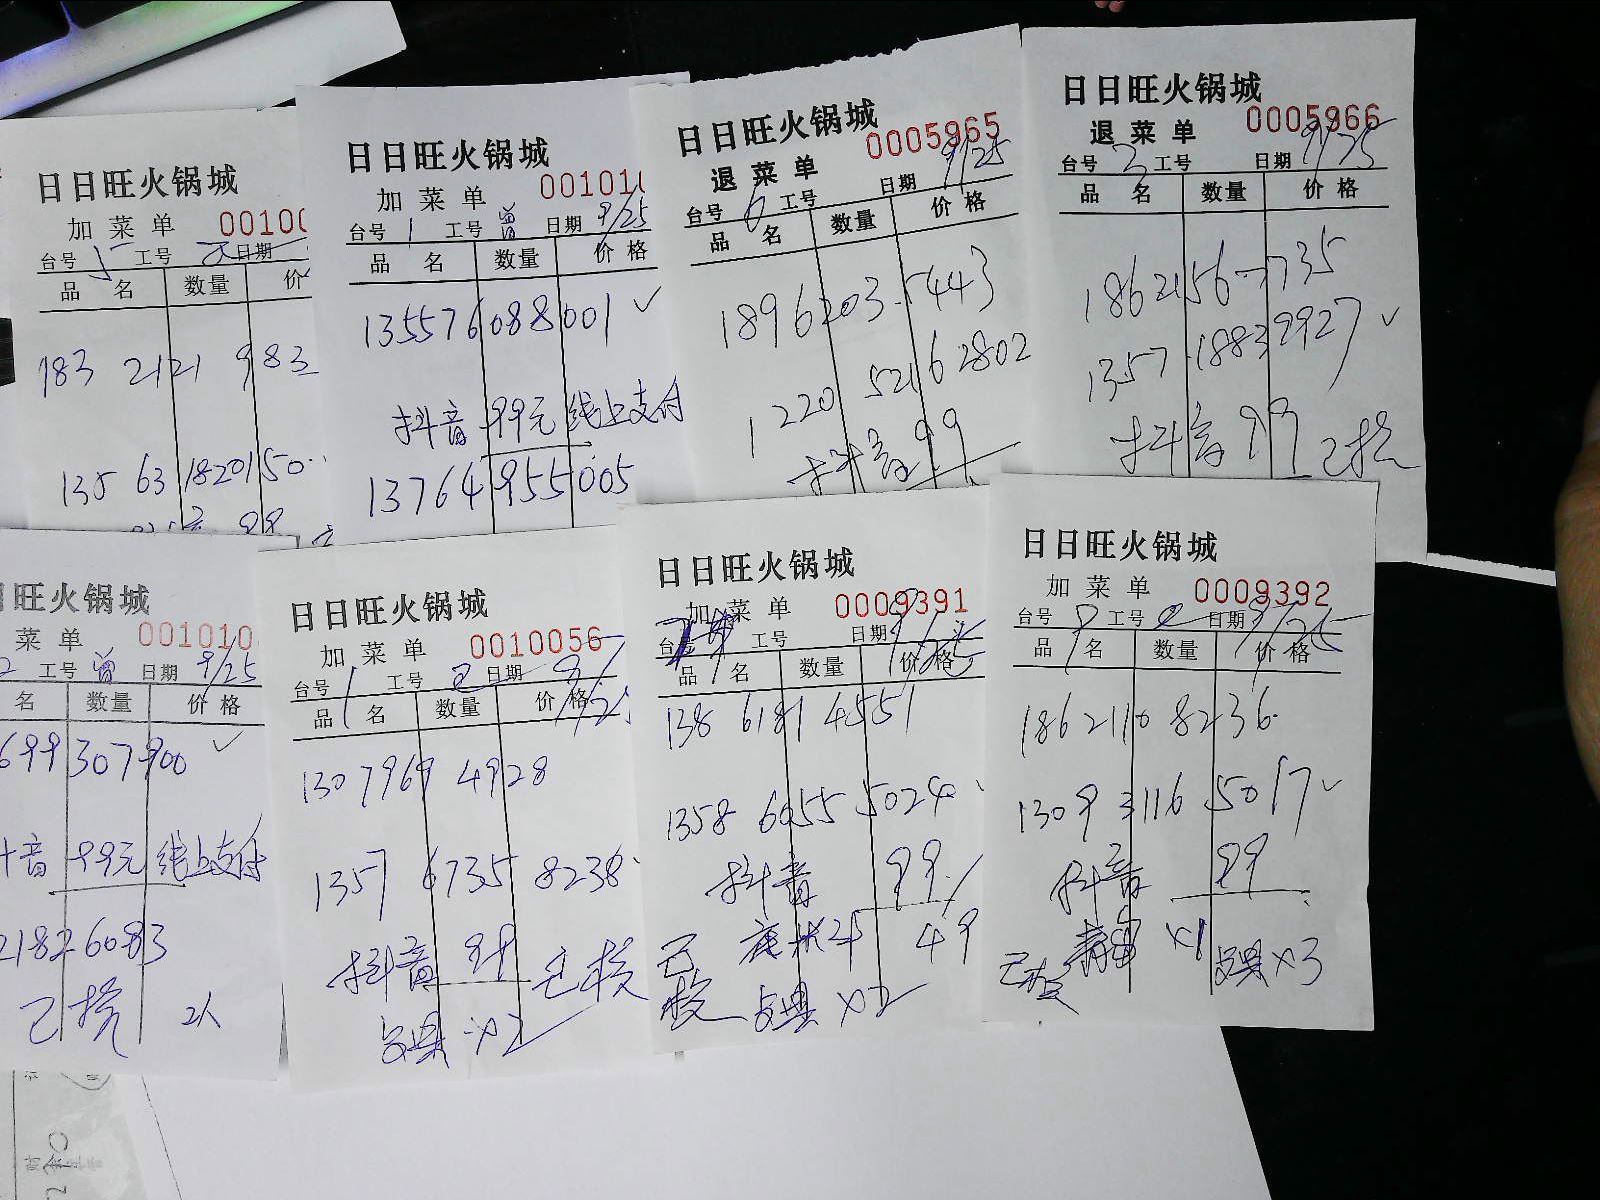 日日旺火锅城
加菜单 00100
台号 5 工号 日期
品名 数量 价
183 2121 983
135 631820150
99
日日旺火锅城
加菜单 001010
台号 1 工号 曾 日期 9/25
品名 数量 价格
135576088001 ✓
抖音 99元 线上支付
13764955005
日日旺火锅城
退菜单 0005965
台号 6 工号 日期 9/25
品名 数量 价格
1896203.5443
1220 52162802
抖音99
日日旺火锅城
退菜单 0005966
台号 3 工号 日期 9/25
品名 数量 价格
1862156-7735
1357.18832927 ✓
抖音99 已核
旺火锅城
菜单 001010
2 工号 曾 日期 9/25
名 数量 价格
699307900 ✓
音 99元 线上支付
21826083
已核 2人
日日旺火锅城
加菜单 0010056
台号 1 工号 日期 9/25
品名 数量 价格
1307969 4928
1357 6735 8238
抖音 99 已核
×2
日日旺火锅城
加菜单 0009391
台号 工号 日期 9/25
品名 数量 价格
138 6181 4551
1358 6055 5024
抖音 99
已核 49
×2
日日旺火锅城
加菜单 0009392
台号 9 工号 日期 9/25
品名 数量 价格
186 2110 8236
1309 3116 5017 ✓
抖音 99
已核 ×1 ×3